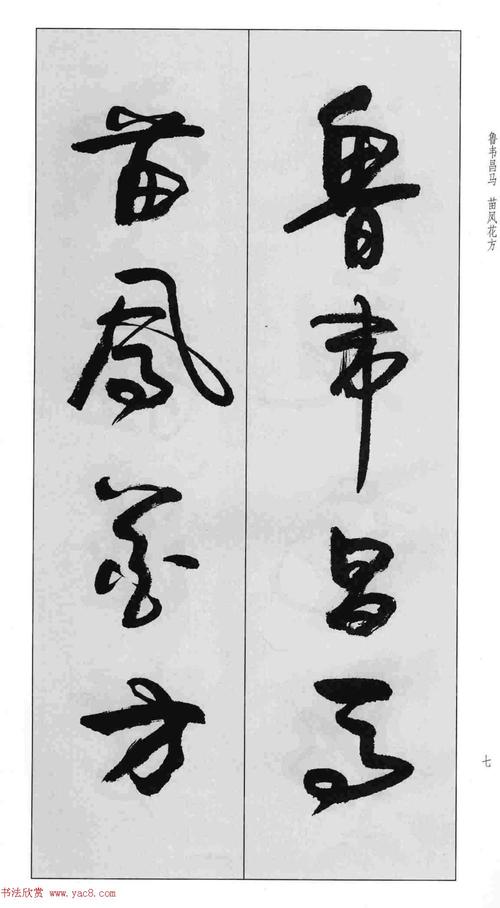 鲁韦昌马 苗凤花方
魯韦昌马
苗鳳花方
七
书法欣赏 www.yac8.com